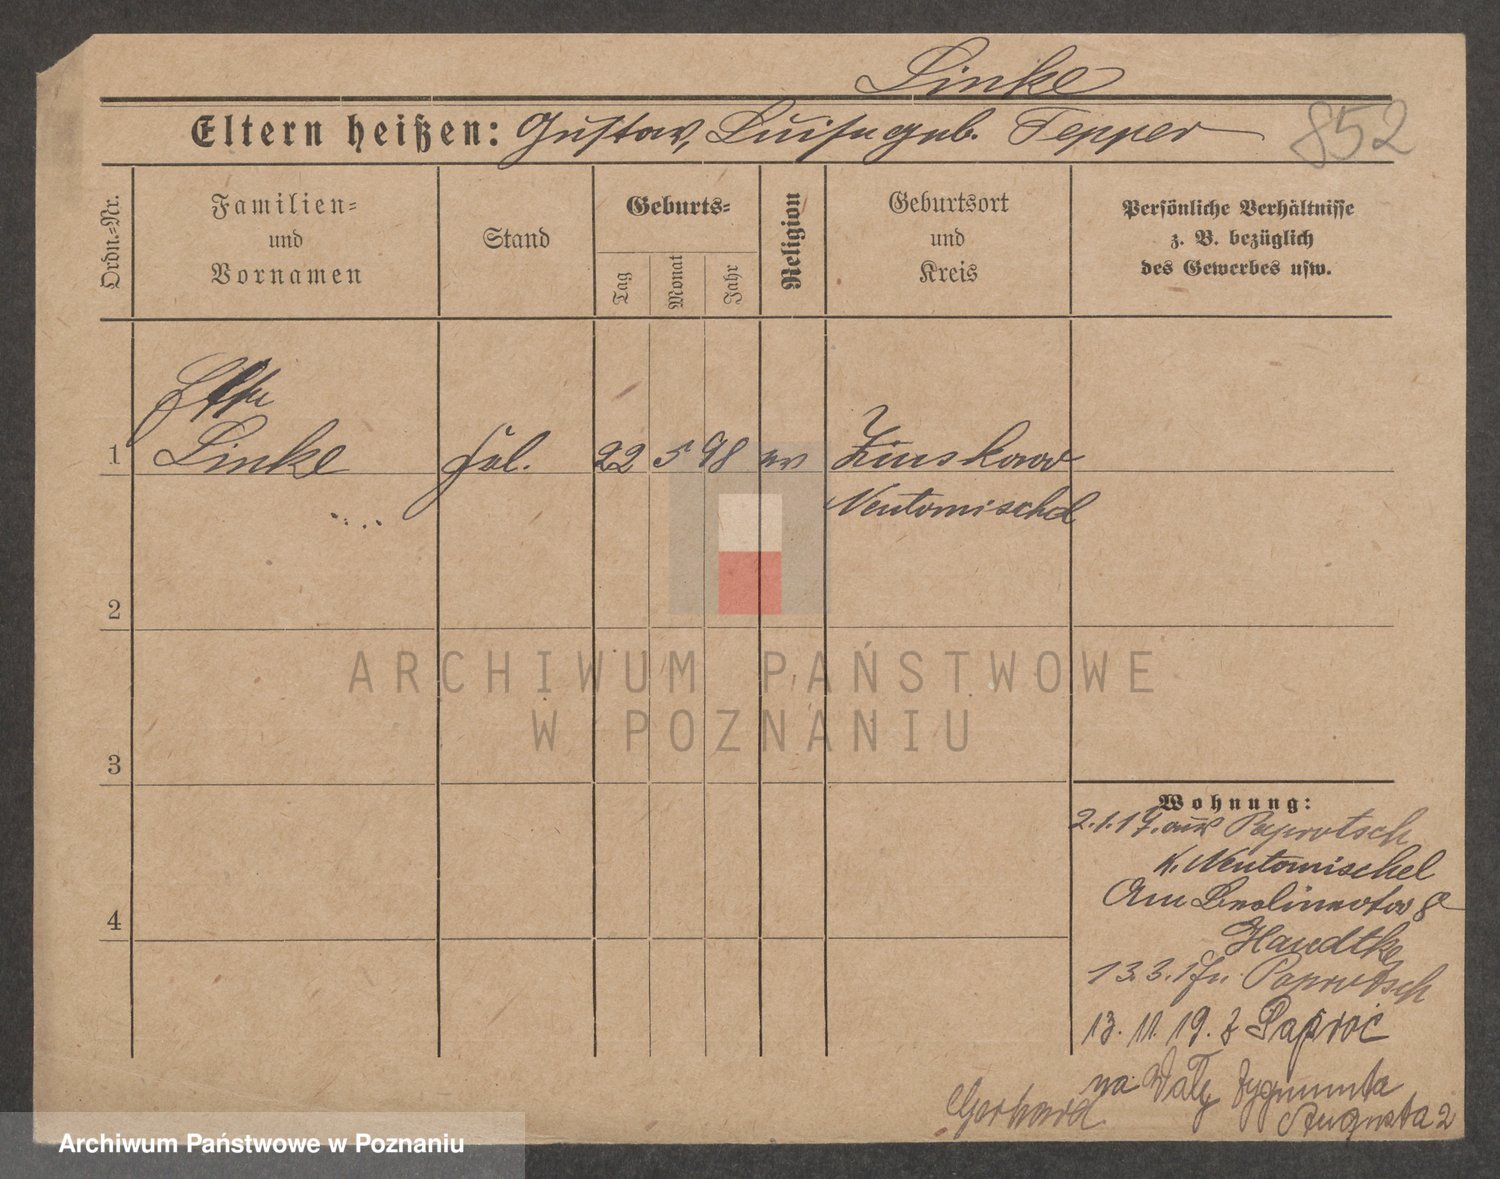 Linke
Eltern heißen: Gustav, Luise geb. Tepper
852
Ordn.-Nr.
Familien-
und
Vornamen
Stand
Geburts-
Tag
Monat
Jahr
Religion
Geburtsort
und
Kreis
Persönliche Verhältnisse
z. B. bezüglich
des Gewerbes usw.
Linke
1
frl. 22 5 98 ev Zinskowo
Neutomischel
2
3
4
Wohnung:
2.1.19. aus Paprotsch
K. Neutomischel
Am Berlinertor 8
Handtke
13.3.19 n. Paprotsch
13. 11. 19. z Paproć
na Wały Zygmunta
Augusta 2
Gerhard
ARCHIWUM PAŃSTWOWE
W POZNANIU
Archiwum Państwowe w Poznaniu